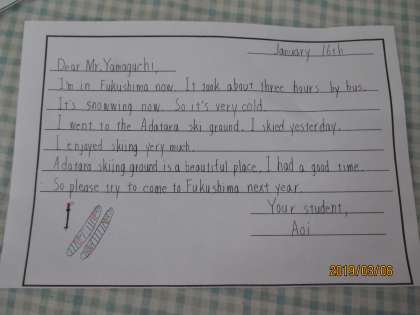 January 16th
Dear Mr. Yamaguchi,
I'm in Fukushima now. It took about three hours by bus.
It's snowwing now. So it's very cold.
I went to the Adatara ski ground. I skied yesterday.
I enjoyed skiing very much.
Adatara skiing ground is a beautiful place. I had a good time.
So please try to come to Fukushima next year.
Your student,
Aoi
2019/03/06